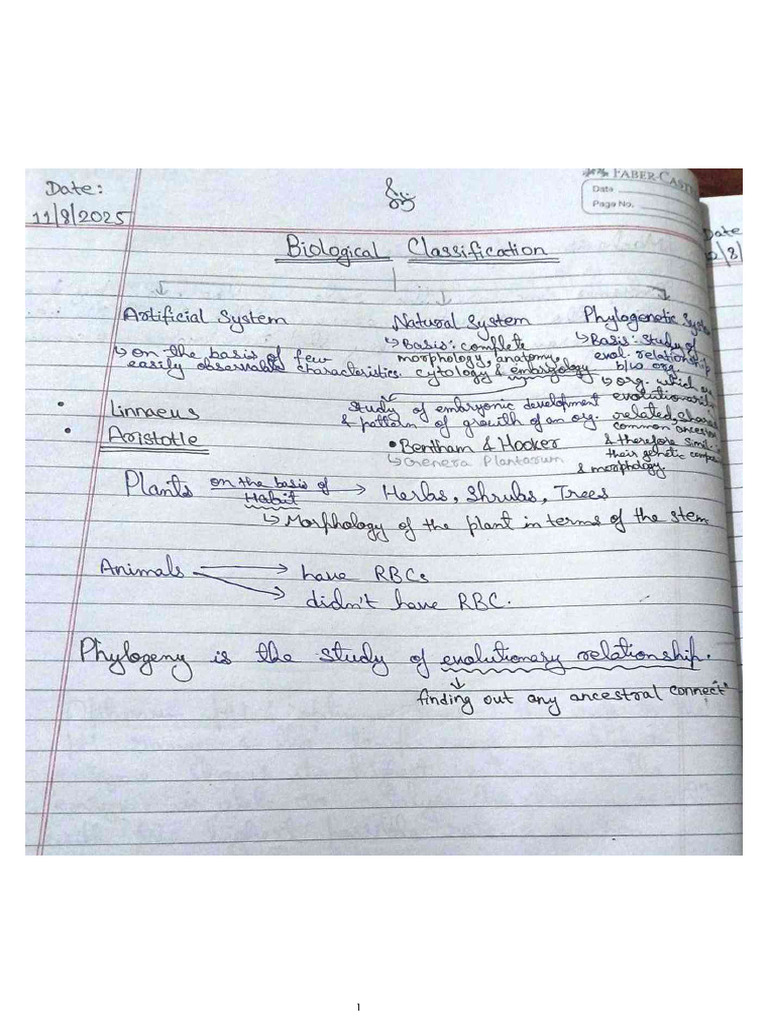 FABER-CAST
Date
Page No.
Date:
11/8/2025
Date
Biological Classification
Artificial System
↳ on the basis of few
easily observable characteristics.
• Linnaeus
• Aristotle
Natural System
↳ Basis: complete
morphology, anatomy,
cytology & embryology
study of embryonic development
& pattern of growth of an org.
• Bentham & Hooker
↳ Genera Plantarum
Phylogenetic Syste
↳ Basis: study of
evol. relationship
b/w org.
↳ org. which are
evolutionarily
related, share
common ancestor
& therefore simil.
their genetic compo
& morphology.
Plants on the basis of Habit → Herbs, Shrubs, Trees
↳ Morphology of the plant in terms of the stem
Animals → have RBCs
→ didn't have RBC.
Phylogeny is the study of evolutionary relationship.
↓
finding out any ancestral connectn
1